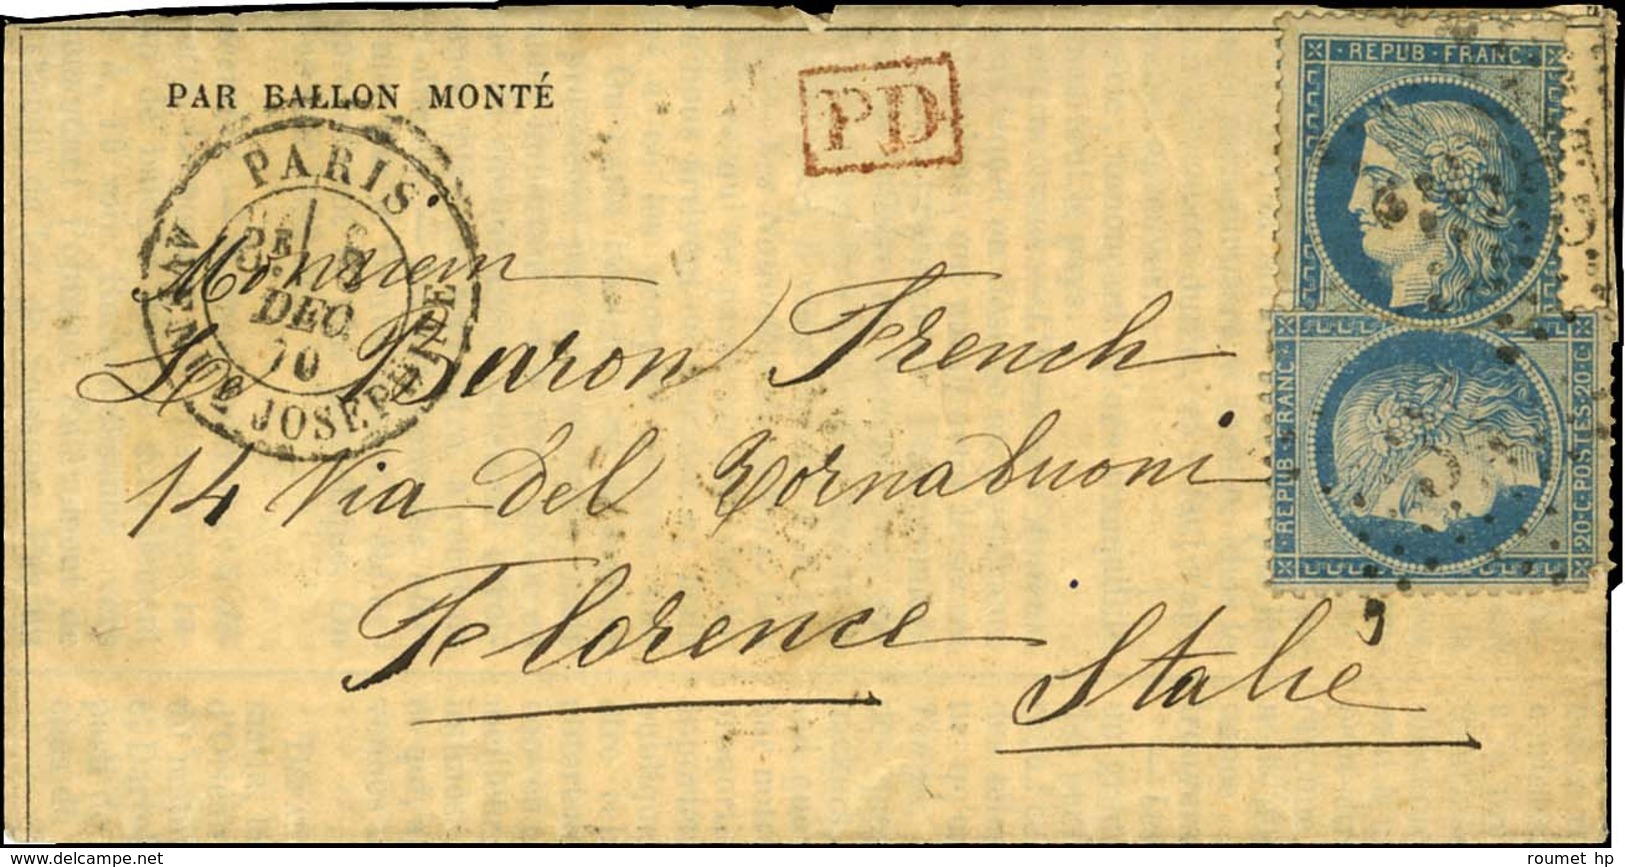 PAR BALLON MONTÉ
PD
PARIS
DEC.
70
JOSEPHINE
REPUB·FRANC·
REPUB·FRANC·
20·C·POSTES·20·C
Monsieur
Le Baron French
14 Via del Tornabuoni
Florence
Italie
roumet hp